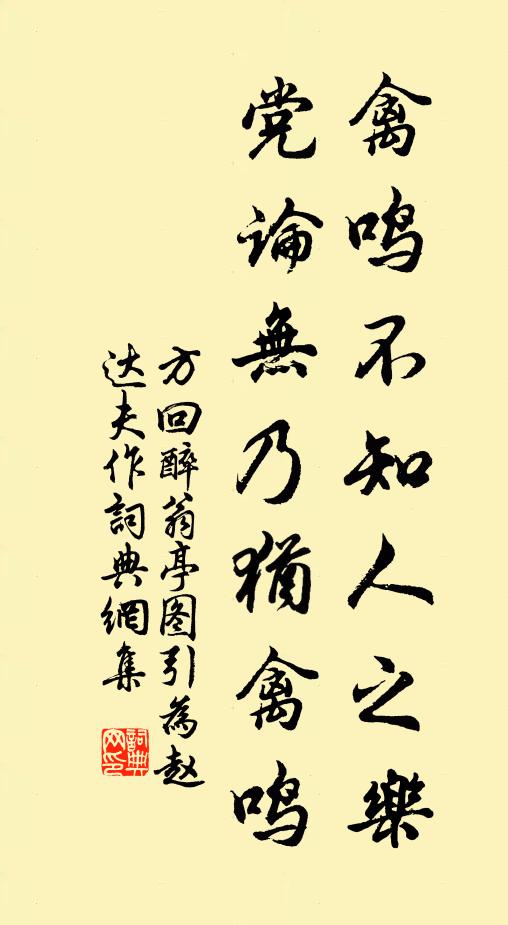 禽鸣不知人之樂
党论無乃犹禽鸣
方回醉翁亭图引為赵
达夫作詞典網集
詞典网印